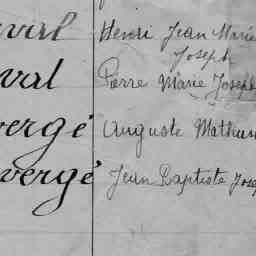 Henri Jean Marie
Joseph
val Pierre Marie Joseph
vergé Auguste Mathurin
vergé Jean Baptiste Josep